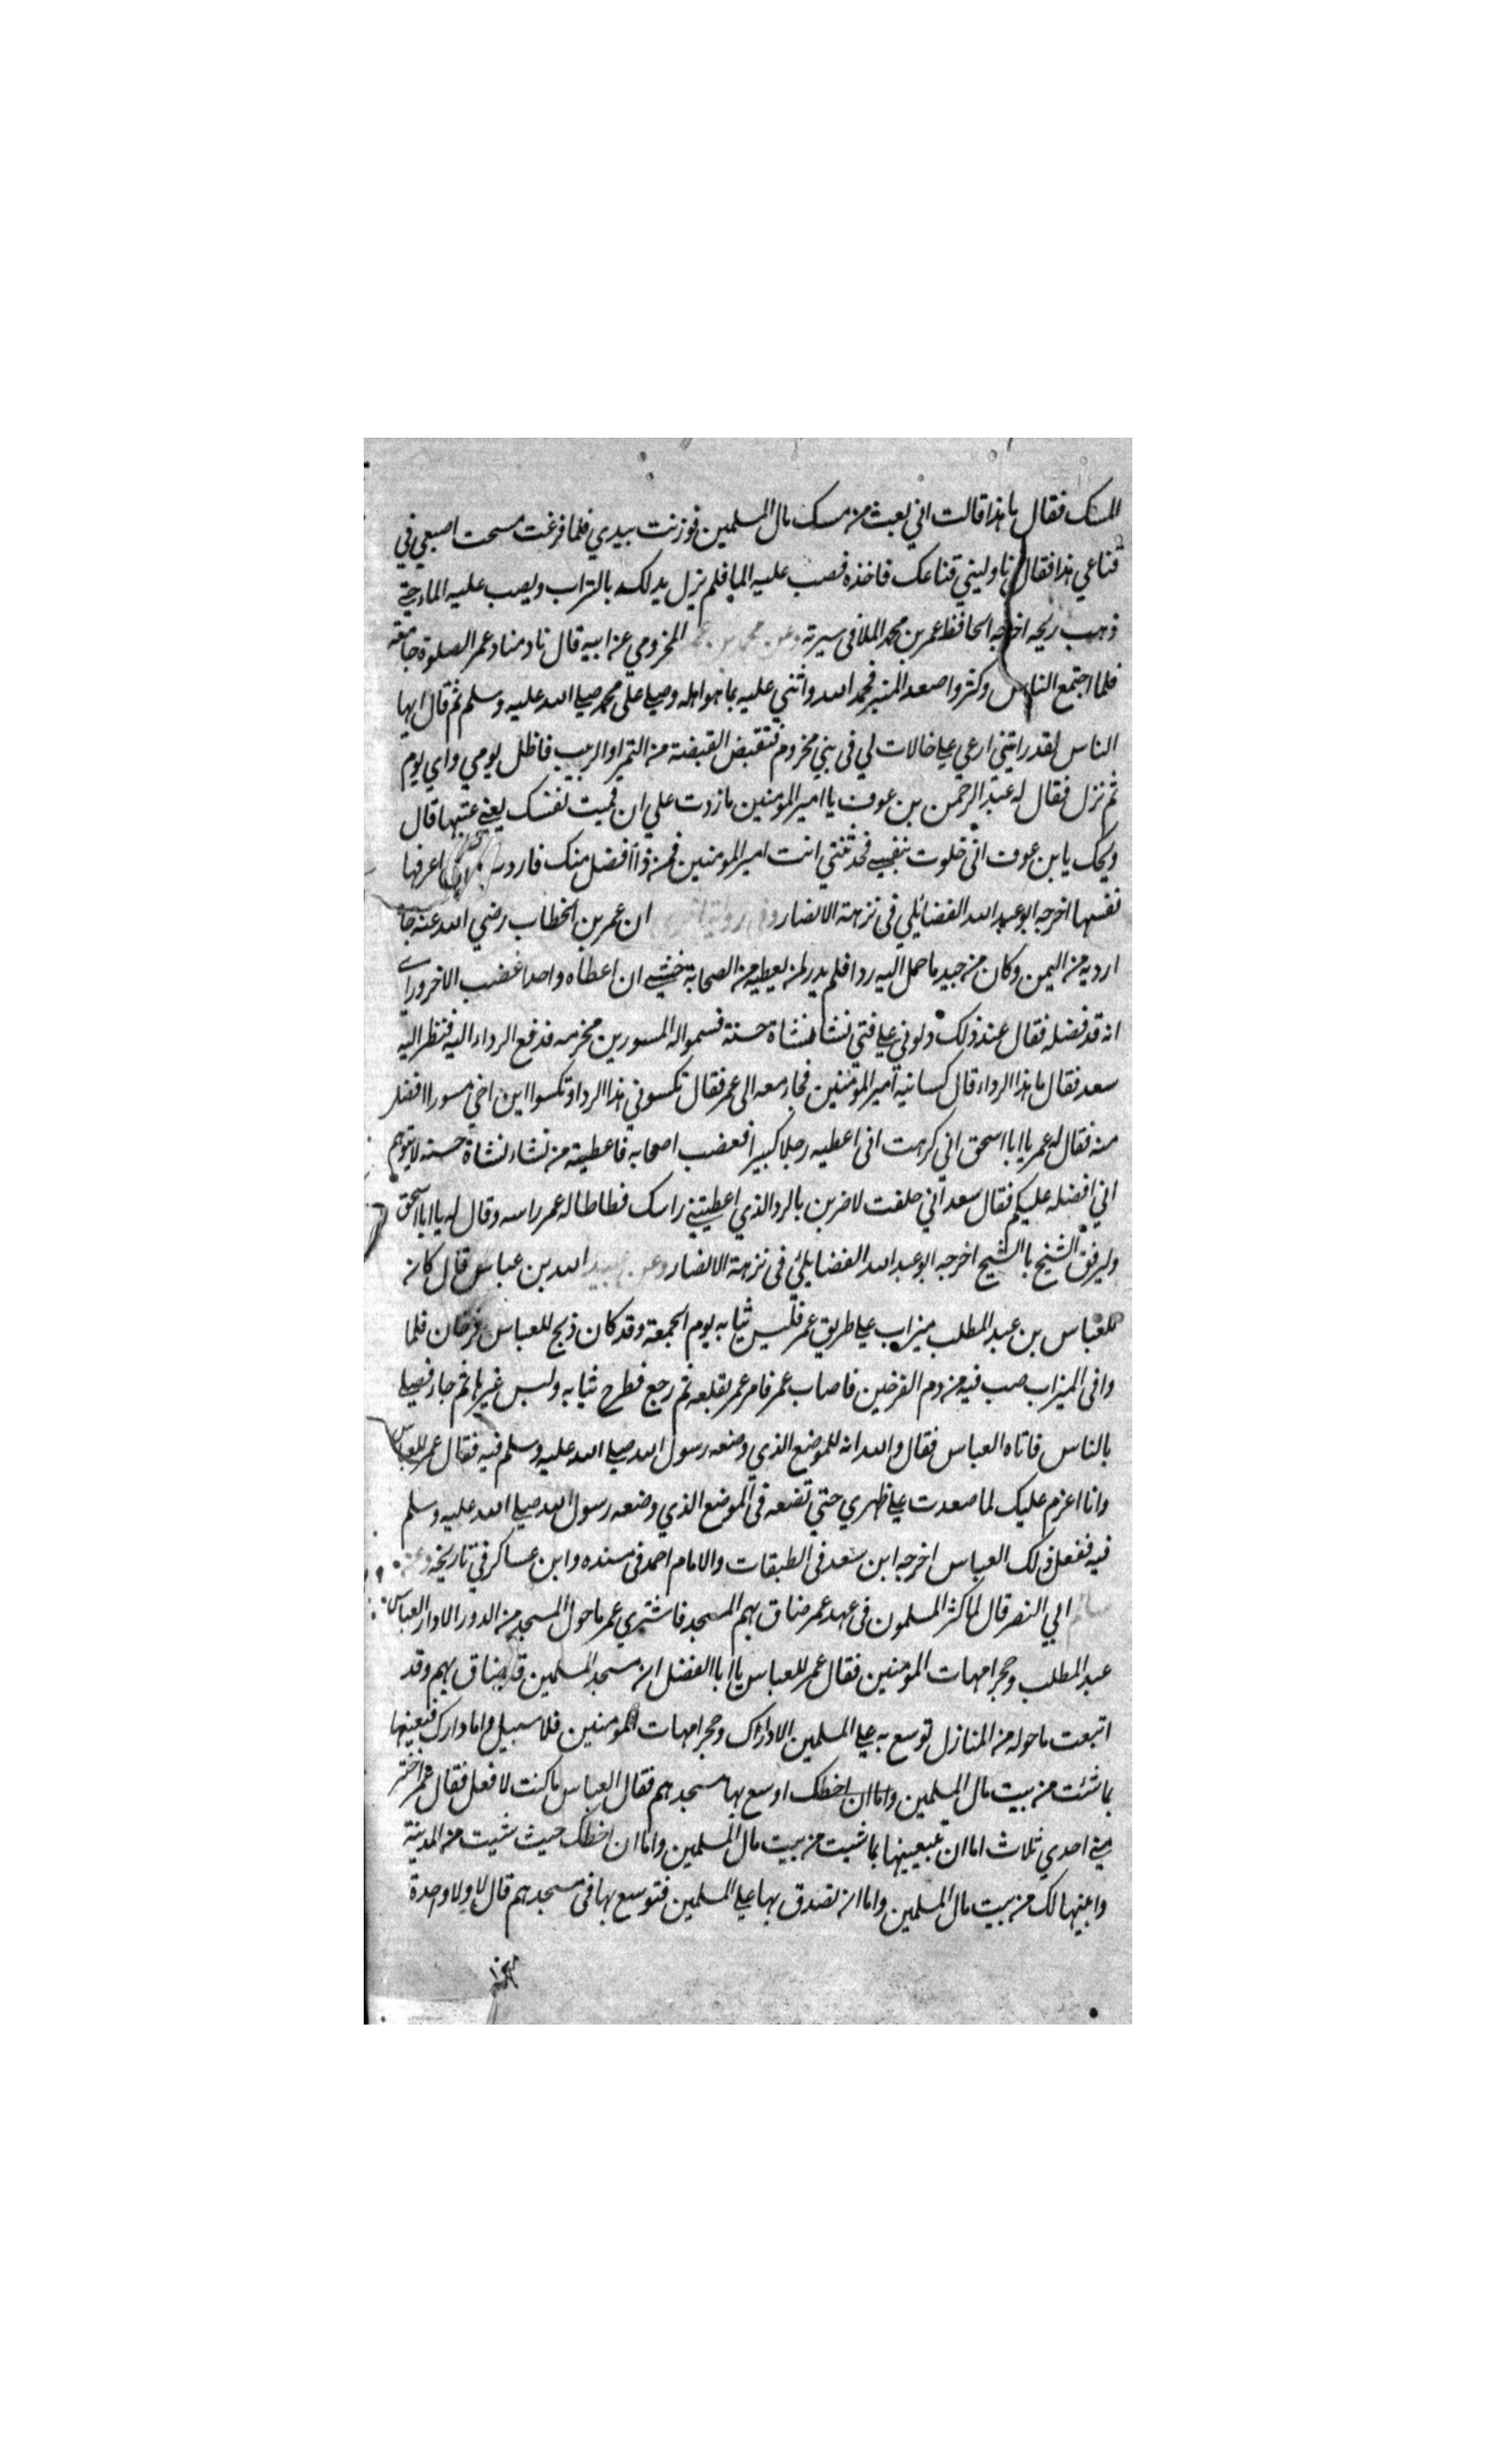 المسك فقال ما هذا قالت اني بعت من مسك مال المسلمين فوزنت بيدي فلما فرغت مسحت اصبعي في
قناعي هذا فقال ناوليني قناعك فاخذه فصب عليه الما فلم يزل يدلكه بالتراب ويصب عليه الماء حتى
ذهب ريحه اخرجه الحافظ عمر بن محمد الملا في سيرته وعن محمد بن المخزومي عن ابيه قال نادمناد عمر الصلوة جامعة
فلما اجتمع الناس وكثروا صعد المنبر فحمد الله واثني عليه بما هو اهله وصلى على محمد صلى الله عليه وسلم ثم قال ايها
الناس لقد رايتني ارعي على خالات لي في بني مخزوم فتقبض القبضة من التمر او الزبيب فاظل يومي واي يوم
ثم نزل فقال له عبد الرحمن بن عوف يا امير المومنين ما زدت علي ان قميت نفسك يعني عبتها قال
ويحك يا بن عوف اني خلوت بنفسي فحدثتني انت امير المومنين فمن ذا افضل منك فاردت ان اعرفها
نفسها اخرجه ابو عبد الله الفضائلي في نزهة الابصار وفي رواية ان عمر بن الخطاب رضي الله عنه جا
اردية من اليمن وكان من جيد ما حمل اليه ردا فلم يدر لمن يعطيه من الصحابة خشي ان اعطاه واحدا غضب الاخر وراى
انه قد فضله فقال عند ذلك دلوني على فتى نشا نشاة حسنة فسموا له المسور بن مخرمه فدفع الرداء اليه فنظر اليه
سعد فقال ما هذا الرداء قال كسانيه امير المومنين فجاء معه الى عمر فقال تكسوني هذا الردا وتكسوا ابن اخي مسورا افضل
منه فقال له عمر يا ابا اسحق اني كرهت اني اعطيه رجلا كبيرا فغضب اصحابه فاعطيته من نشاء نشاة حسنه لا يتوهم
اني افضله عليكم فقال سعد اني حلفت لاضربن بالرد الذي اعطيتني راسك فطاطا له عمر راسه وقال له يا ابا اسحق
وليرفق الشيخ بالشيخ اخرجه ابو عبد الله الفضايلي في نزهة الابصار وعن عبيد الله بن عباس قال كان
للعباس بن عبد المطلب ميزاب على طريق عمر فلبس ثيابه يوم الجمعة وقد كان ذبح للعباس فرخان فلما
وافى الميزاب صب فيه من دم الفرخين فاصاب عمر فامر عمر بقلعه ثم رجع فطرح ثيابه ولبس غيرها ثم جاء فصلى
بالناس فاتاه العباس فقال والله انه للموضع الذي وضعه رسول الله صلى الله عليه وسلم فيه فقال عمر للعباس
وانا اعزم عليك لما صعدت على ظهري حتي تضعه في الموضع الذي وضعه رسول الله صلى الله عليه وسلم
فيه ففعل ذلك العباس اخرجه ابن سعد في الطبقات والامام احمد في مسنده وابن عساكر في تاريخه وعن
سالم ابي النضر قال لما كثر المسلمون في عهد عمر ضاق بهم المسجد فاشتري عمر ما حول المسجد من الدور الا دار العباس
عبد المطلب وحجر امهات المومنين فقال عمر للعباس يا ابا الفضل ان مسجد المسلمين قد ضاق بهم وقد
اتبعت ما حوله من المنازل توسع به على المسلمين الا دارك وحجر امهات المومنين فلا سبيل واما دارك فبعنيها
بما شئت من بيت مال المسلمين واما ان اخطك اوسع بها مسجدهم فقال العباس ما كنت لا فعل فقال عمر اختر
مني احدي ثلاث اما ان تبيعنيها بما شيت من بيت مال المسلمين واما ان اخطك حيث شيت من المدينة
وابنيها لك من بيت مال المسلمين واما ان تصدق بها على المسلمين فتوسع بها في مسجدهم قال لا ولا واحدة
منها